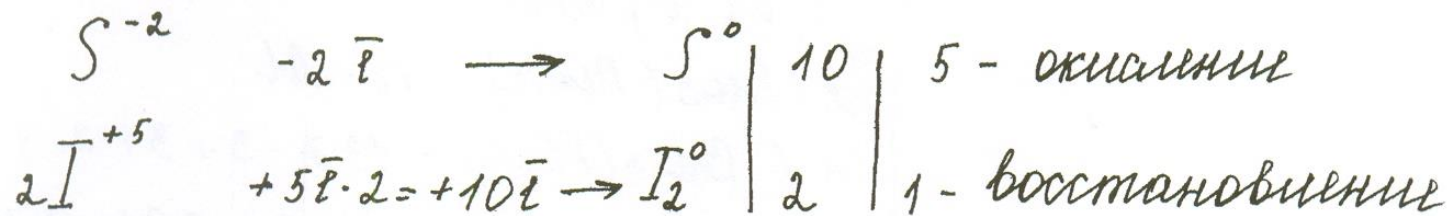 S⁻² -2ē → S⁰ | 10 | 5 - окисление
2I⁺⁵ +5ē·2=+10ē → I₂⁰ | 2 | 1 - восстановление